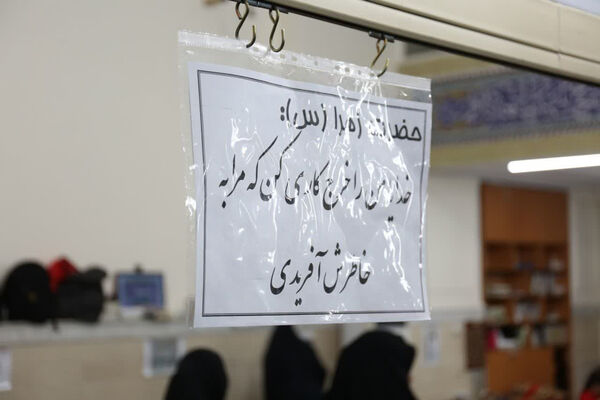 حضرت زهرا (س):
خدایا من را خرج کاری کن که مرا به
خاطرش آفریدی